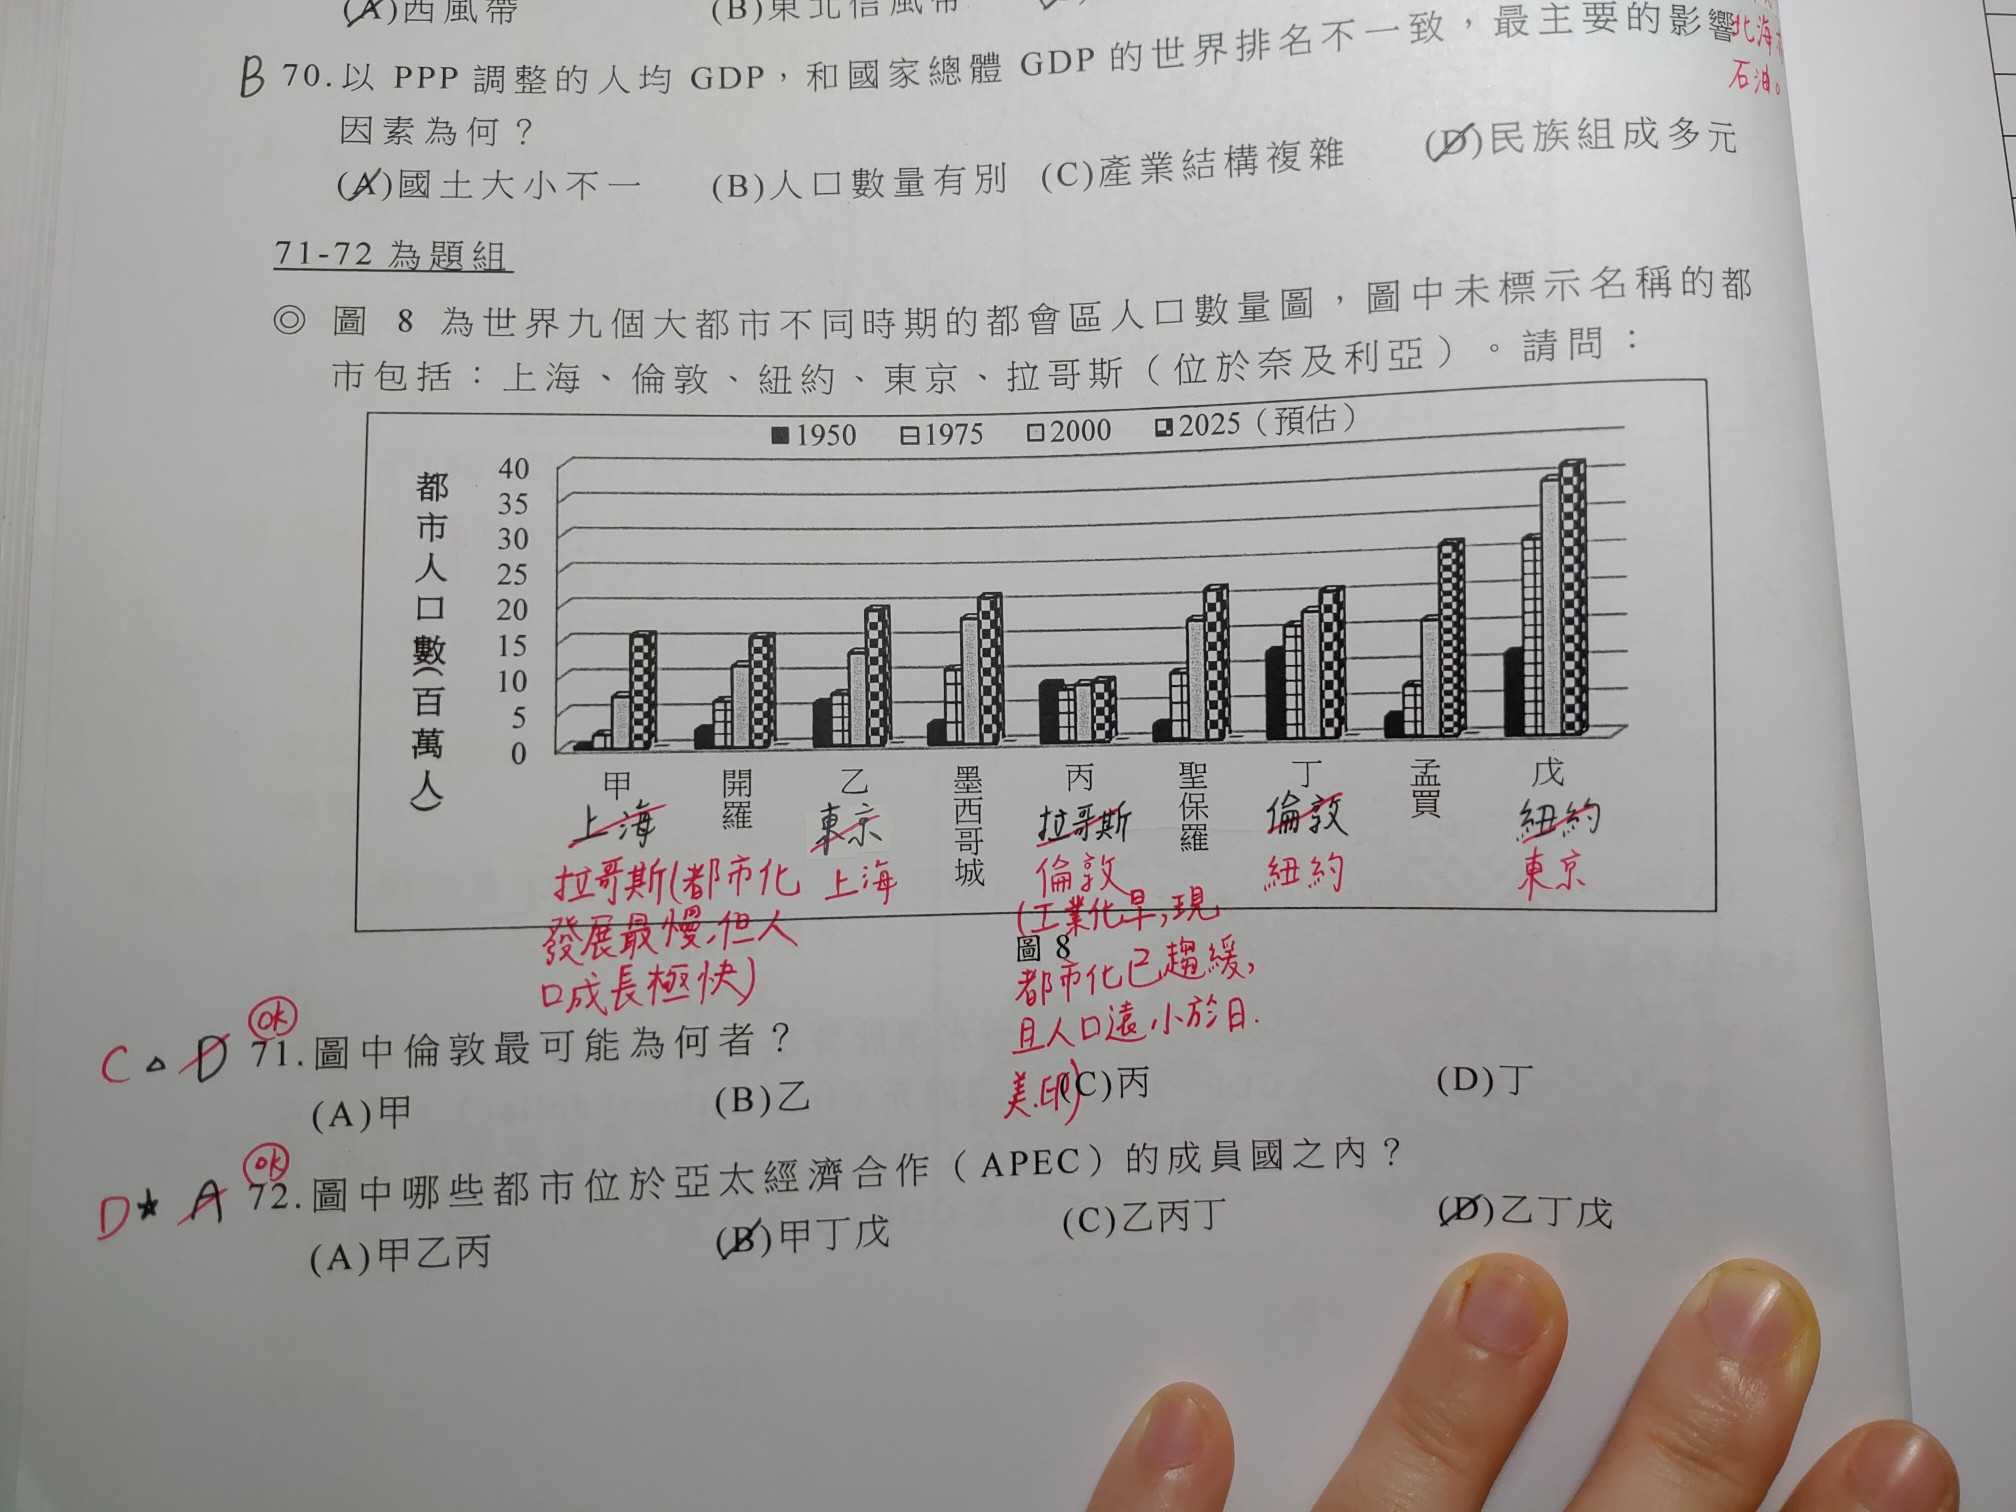 (A)西風帶 (B)東北信風帶
北海
石油。
B 70.以 PPP 調整的人均 GDP，和國家總體 GDP 的世界排名不一致，最主要的影響
因素為何？
(A)國土大小不一 (B)人口數量有別 (C)產業結構複雜 (D)民族組成多元
71-72 為題組
◎ 圖 8 為世界九個大都市不同時期的都會區人口數量圖，圖中未標示名稱的都
市包括：上海、倫敦、紐約、東京、拉哥斯（位於奈及利亞）。請問：
1950 1975 2000 2025（預估）
都市人口數(百萬人)
40
35
30
25
20
15
10
5
0
甲 開羅 乙 墨西哥城 丙 聖保羅 丁 孟買 戊
上海 東京 拉哥斯 倫敦 紐約
拉哥斯(都市化 上海 倫敦 紐約 東京
發展最慢,但人
口成長極快)
(工業化早,現
圖 8
都市化已趨緩,
且人口遠小於日.
美.印)
C △ D ok 71.圖中倫敦最可能為何者？
(A)甲 (B)乙 (C)丙 (D)丁
D★ A ok 72.圖中哪些都市位於亞太經濟合作（APEC）的成員國之內？
(A)甲乙丙 (B)甲丁戊 (C)乙丙丁 (D)乙丁戊